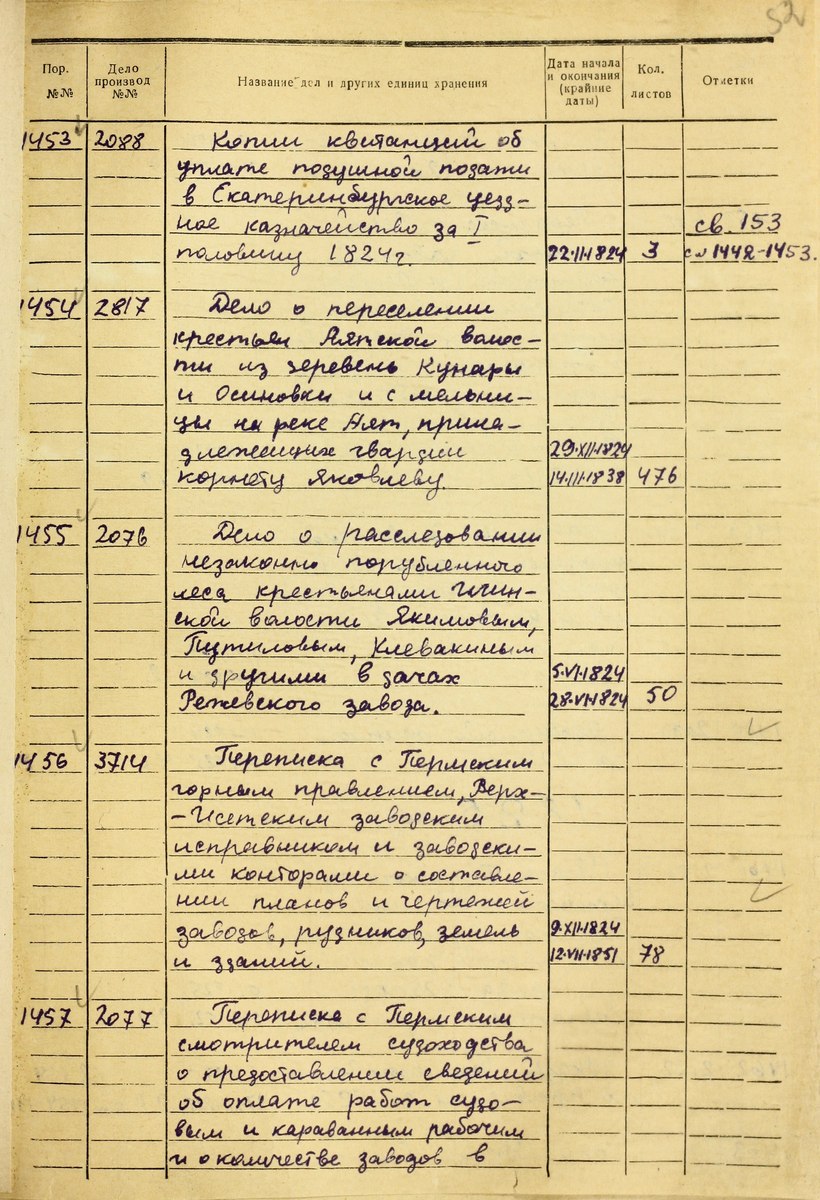 52
Пор.
№№
Дело
производ
№№
Название дел и других единиц хранения
Дата начала
и окончания
(крайние
даты)
Кол.
листов
Отметки
1453 2088 Копии квитанций об
уплате подушной подати
в Екатеринбургское уезд-
ное казначейство за I св. 153
половину 1824 г. 22.II.1824 3 с 1442-1453.
1454 2817 Дело о переселении
крестьян Аятской волос-
ти из деревень Кунары
и Осиновки и с мельни-
цы на реке Аят, прина-
длежащих гвардии 29.XII.1824
корнету Яковлеву 14.III.1838 476
1455 2076 Дело о расследовании
незаконно порубленного
леса крестьянами
ской волости Якимовым,
Путиловым, Клевакиным
и другими в дачах 5.VI.1824
Режевского завода. 28.VI.1824 50
1456 3714 Переписка с Пермским
горным правлением, Верх-
-Исетским заводским
исправником и заводски-
ми конторами о составле-
нии планов и чертежей
заводов, рудников, земель 9.XII.1824
и зданий. 12.VII.1851 78
1457 2077 Переписка с Пермским
смотрителем судоходства
о предоставлении сведений
об оплате работ судо-
вым и караванным рабочим
и о количестве заводов в